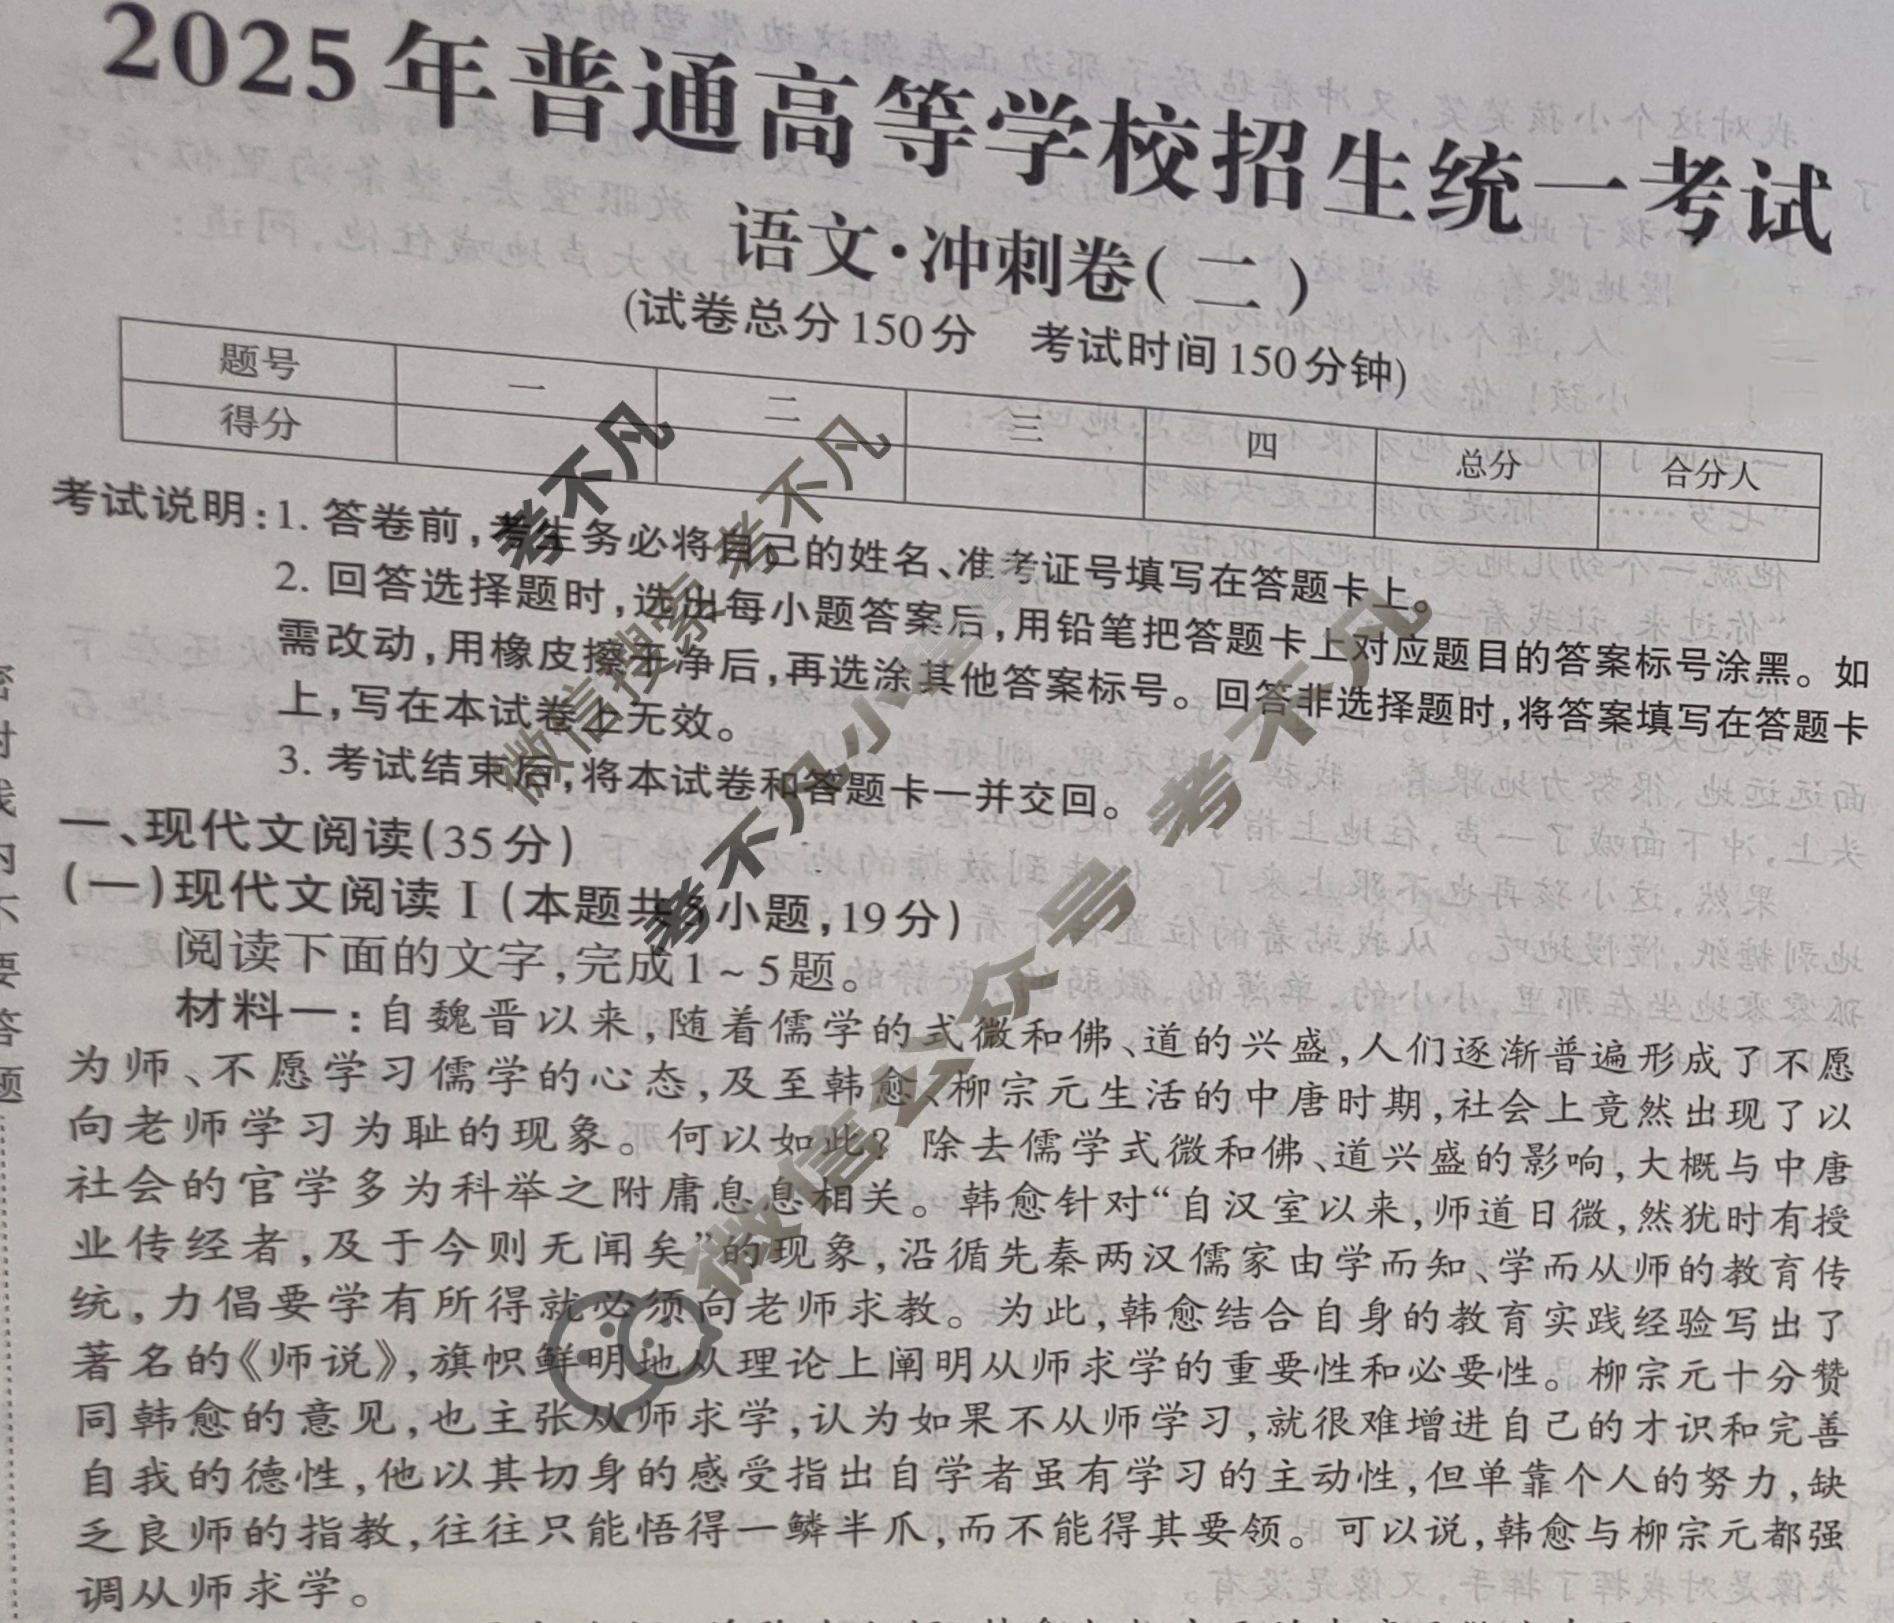 2025年普通高等学校招生统一考试
语文·冲刺卷(二)
(试卷总分150分 考试时间150分钟)
题号 一 二 三 四 总分 合分人
得分
考试说明:1. 答卷前,考生务必将自己的姓名、准考证号填写在答题卡上。
2. 回答选择题时,选出每小题答案后,用铅笔把答题卡上对应题目的答案标号涂黑。如
需改动,用橡皮擦干净后,再选涂其他答案标号。回答非选择题时,将答案填写在答题卡
上,写在本试卷上无效。
3. 考试结束后,将本试卷和答题卡一并交回。
一、现代文阅读(35分)
(一)现代文阅读Ⅰ(本题共5小题,19分)
阅读下面的文字,完成1~5题。
材料一:自魏晋以来,随着儒学的式微和佛、道的兴盛,人们逐渐普遍形成了不愿
为师、不愿学习儒学的心态,及至韩愈、柳宗元生活的中唐时期,社会上竟然出现了以
向老师学习为耻的现象。何以如此?除去儒学式微和佛、道兴盛的影响,大概与中唐
社会的官学多为科举之附庸息息相关。韩愈针对“自汉室以来,师道日微,然犹时有授
业传经者,及于今则无闻矣”的现象,沿循先秦两汉儒家由学而知、学而从师的教育传
统,力倡要学有所得就必须向老师求教。为此,韩愈结合自身的教育实践经验写出了
著名的《师说》,旗帜鲜明地从理论上阐明从师求学的重要性和必要性。柳宗元十分赞
同韩愈的意见,也主张从师求学,认为如果不从师学习,就很难增进自己的才识和完善
自我的德性,他以其切身的感受指出自学者虽有学习的主动性,但单靠个人的努力,缺
乏良师的指教,往往只能悟得一鳞半爪,而不能得其要领。可以说,韩愈与柳宗元都强
调从师求学。
密
封
线
内
不
要
答
题
考不凡
微信搜索 考不凡
考不凡小程序
微信公众号 考不凡